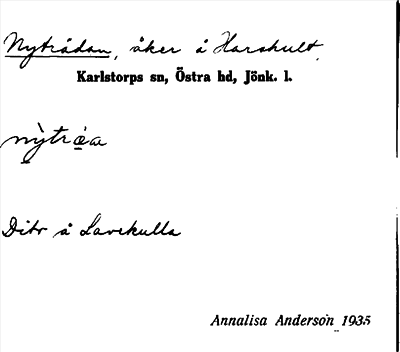 Nyträdan, åker å Harshult.
Karlstorps sn, Östra hd, Jönk. l.
nỳtræ̀a
Ditr å Lavekulla
Annalisa Anderson 1935